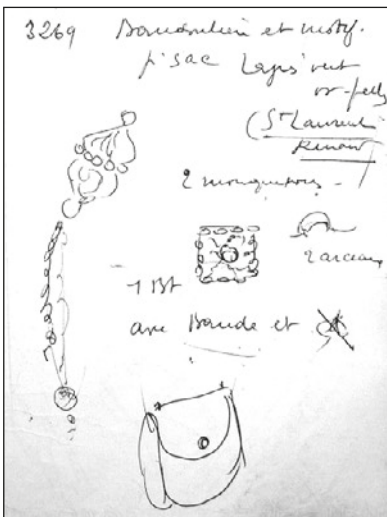 3269 Bandoulière et motif.
p'sac Lapis vert
or
(St Laurent
2 mousquetons -
2 arceaux
1 Bt
avec Bande et